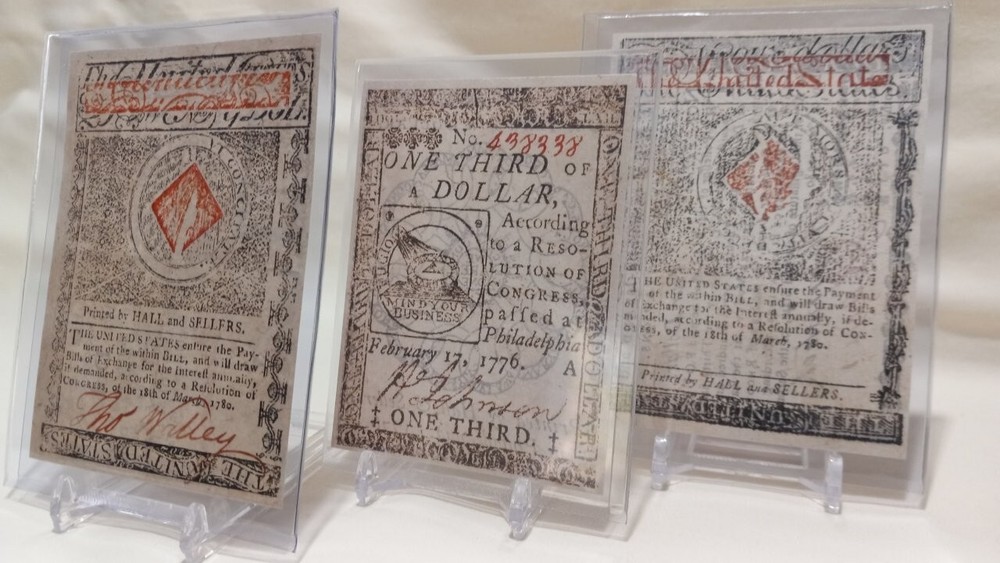 Printed by HALL and SELLERS.
THE UNITED STATES ensure the Pay-
ment of the within BILL, and will draw
Bills of Exchange for the Interest annually,
if demanded, according to a Resolution of
CONGRESS, of the 18th of March, 1780.
Tho Willey
THE UNITED STATES
No. 438338
ONE THIRD OF
A DOLLAR,
According
to a RESO-
LUTION OF
CONGRESS,
passed at
Philadelphia
February 17, 1776.
A
MIND YOUR
BUSINESS
‡ ONE THIRD. ‡
ONE THIRD
DOLLAR
Four dollars
United States
United States.
THE UNITED STATES ensure the Payment
of the within BILL, and will draw Bills
of Exchange for the Interest annually, if de-
manded, according to a Resolution of CON-
GRESS, of the 18th of March, 1780.
Printed by HALL and SELLERS.